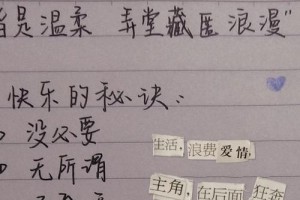 是温柔 弄堂藏匿浪漫"
快乐的秘诀:
没必要
生活,浪费爱情,
无所谓
主角,在后面 狂奔